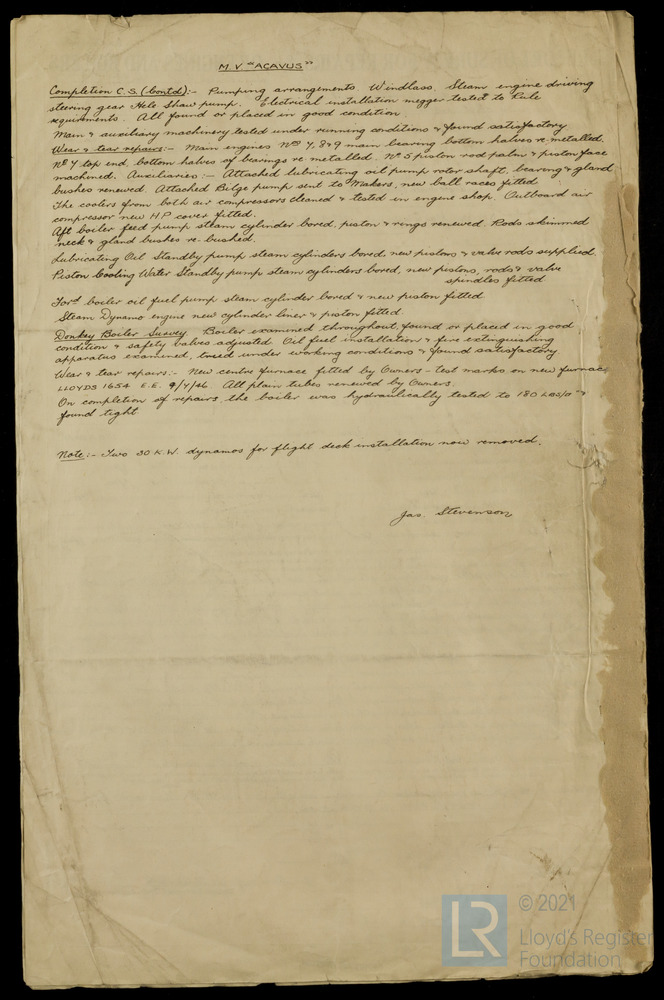 M.V. "ACAVUS"
Completion C.S. (Contd):- Pumping arrangements. Windlass. Steam engine driving
steering gear Hele Shaw pump. Electrical installation megger tested to Rule
requirements. All found or placed in good condition
Main & auxiliary machinery tested under running conditions & found satisfactory
Wear & tear repairs:- Main engines Nos 7, 8 & 9 main bearing bottom halves re-metalled.
No 7 top end bottom halves of bearings re-metalled. No 5 piston rod palm & piston face
machined. Auxiliaries:- Attached lubricating oil pump rotor shaft, bearing & gland
bushes renewed. Attached Bilge pump sent to Makers, new ball races fitted
The coolers from both air compressors cleaned & tested in engine shop. Outboard air
compressor new H.P. cover fitted.
Aft boiler feed pump steam cylinder bored, piston & rings renewed. Rods skimmed
neck & gland bushes re-bushed.
Lubricating Oil Standby pump steam cylinders bored, new pistons & valve rods supplied.
Piston Cooling Water Standby pump steam cylinders bored, new pistons, rods & valve
spindles fitted
Ford boiler oil fuel pump steam cylinder bored & new piston fitted
Steam Dynamo engine new cylinder liner & piston fitted
Donkey Boiler Survey Boiler examined throughout, found or placed in good
condition & safety valves adjusted Oil fuel installation & fire extinguishing
apparatus examined, tried under working conditions & found satisfactory
Wear & tear repairs:- New centre furnace fitted by Owners - test marks on new furnace
LLOYDS 1654 E.E. 9/4/46 All plain tubes renewed by Owners
On completion of repairs the boiler was hydraulically tested to 180 LBS/□"
found tight
Note:- Two 30 K.W. dynamos for flight deck installation now removed.
Jas. Stevenson
LR
© 2021
Lloyd's Register
Foundation